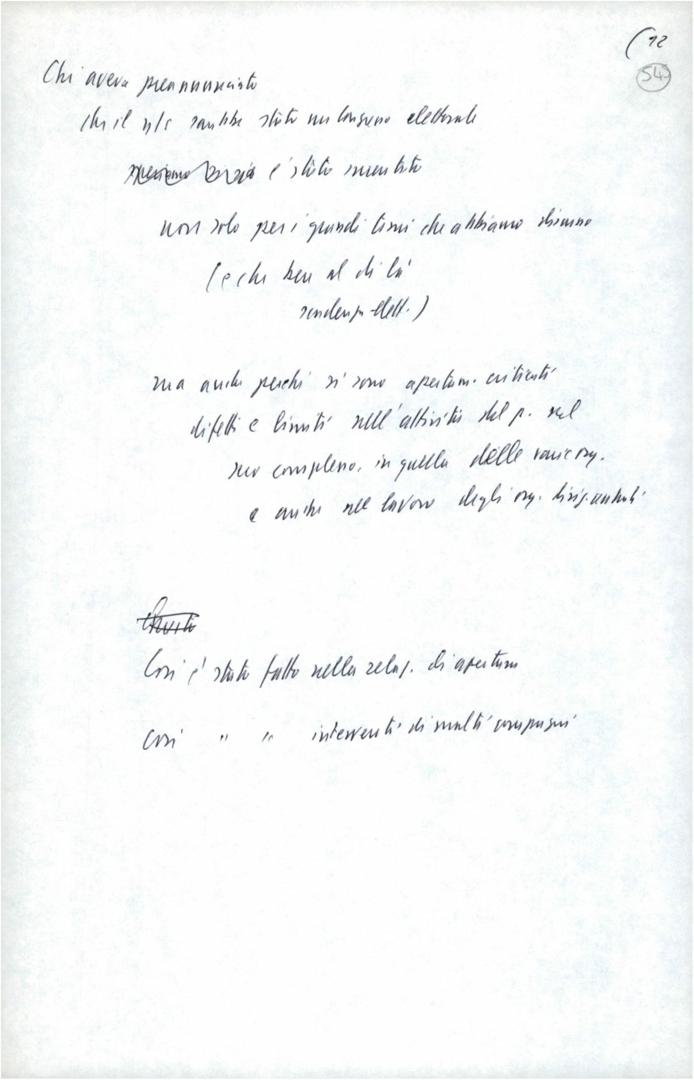 (12
54
Chi aveva preannunciato
che il n/s sarebbe stato un congresso elettorale
è stato smentito
non solo per i grandi temi che abbiamo discusso
(e che ben al di là
scadenza elett.)
ma anche perché si sono apertam. criticati
difetti e limiti nell'attività del p. nel
suo complesso, in quella delle varie org.
e anche nel lavoro degli org. dirig.
Così è stato fatto nella relaz. di apertura
così " " interventi di molti compagni